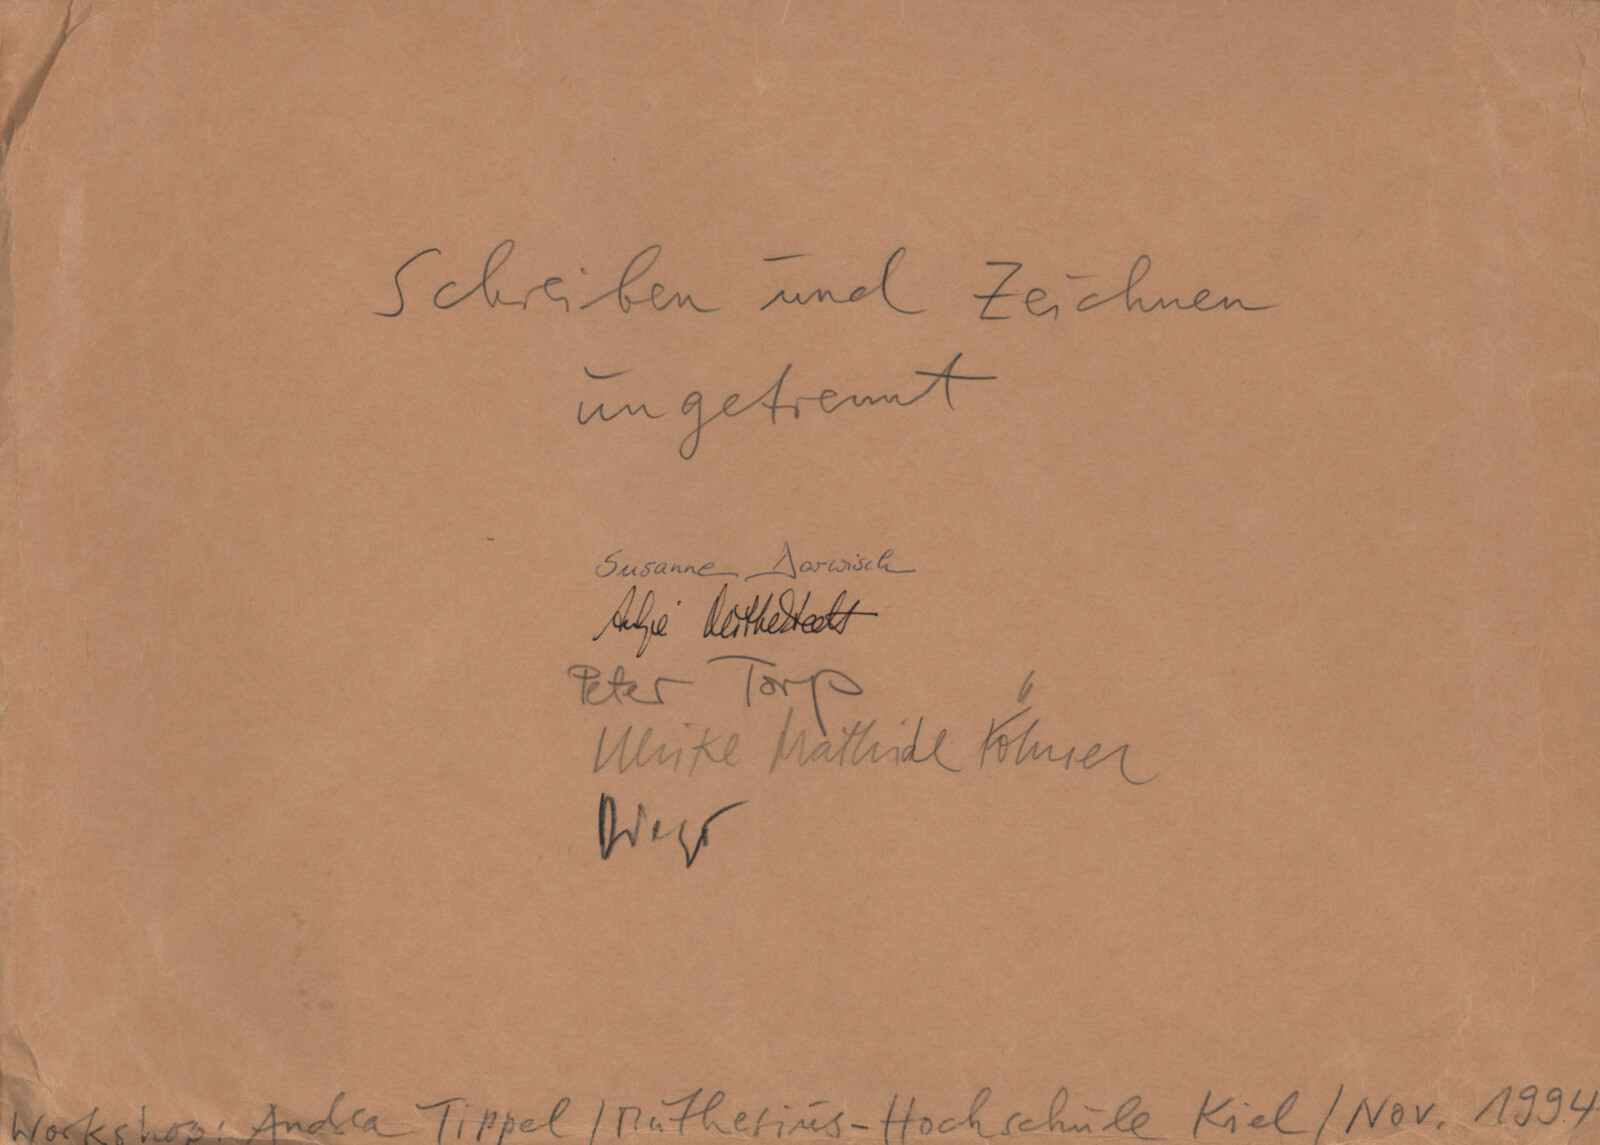 Schreiben und Zeichnen
ungetrennt
Susanne Darwisch
Antje
Peter Torp
Ulrike Mathilde
Workshop: Andrea Tippel / Muthesius-Hochschule Kiel / Nov. 1994